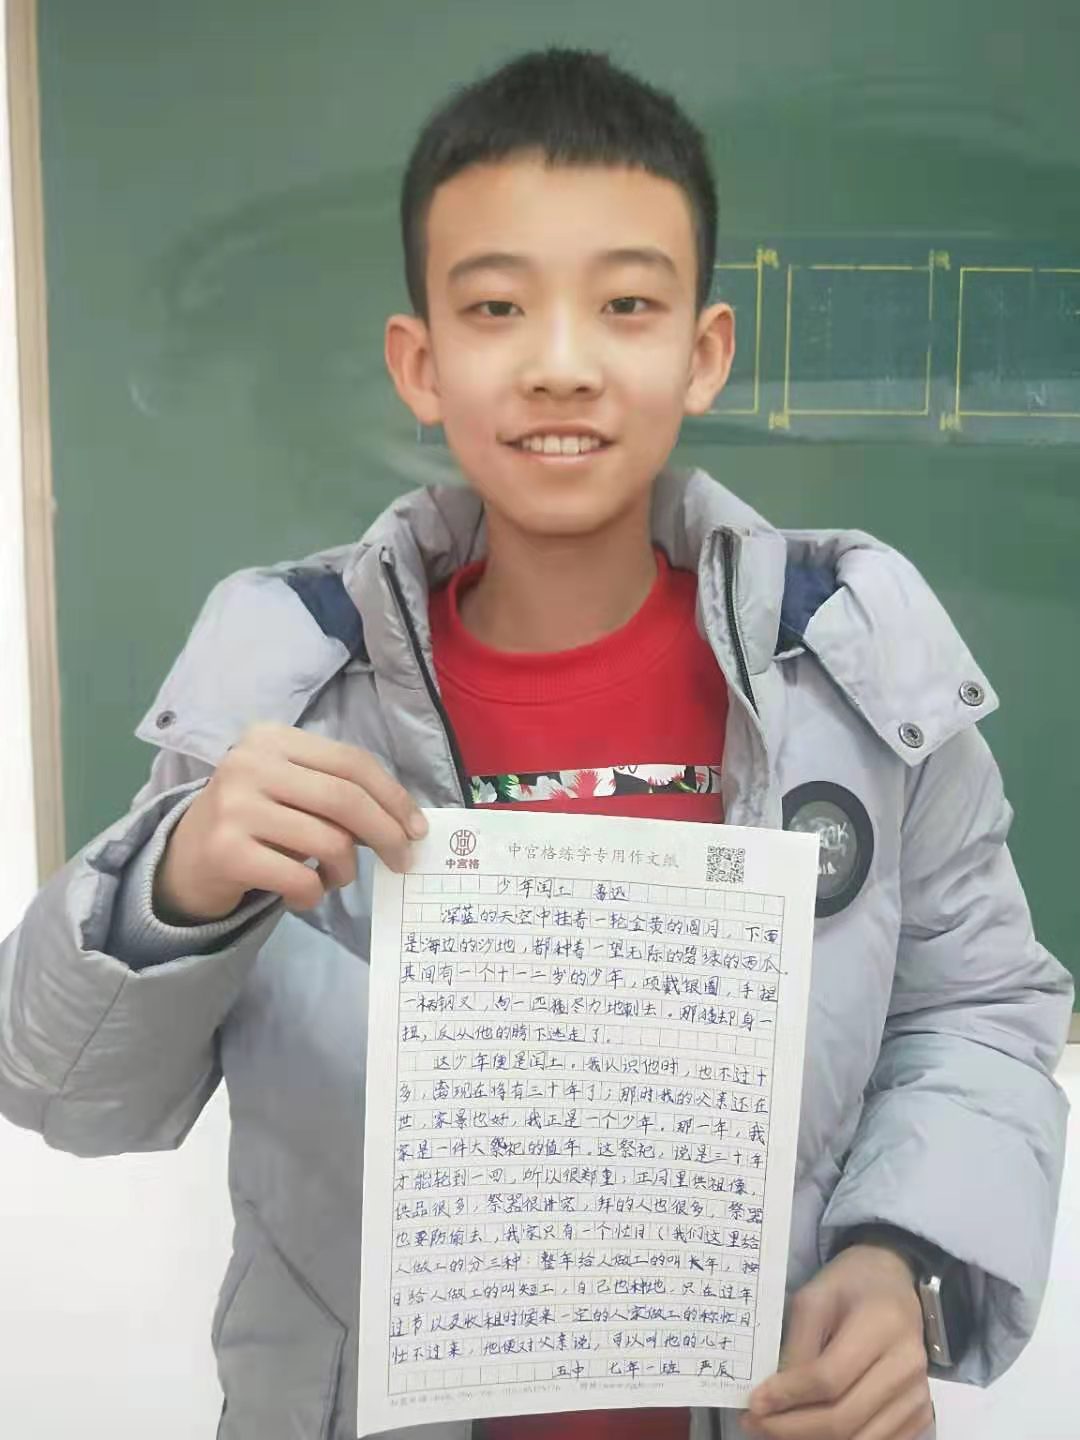 中宫格
中宫格练字专用作文纸
少年闰土 鲁迅
深蓝的天空中挂着一轮金黄的圆月，下面
是海边的沙地，都种着一望无际的碧绿的西瓜。
其间有一个十一二岁的少年，项戴银圈，手捏
一柄钢叉，向一匹猹尽力地刺去。那猹却身一
扭，反从他的胯下逃走了。
这少年便是闰土。我认识他时，也不过十
多，离现在将有三十年了；那时我的父亲还在
世，家景也好，我正是一个少年。那一年，我
家是一件大祭祀的值年。这祭祀，说是三十年
才能轮到一回，所以很郑重；正月里供祖像，
供品很多，祭器很讲究，拜的人也很多，祭器
也要防偷去，我家只有一个忙月（我们这里给
人做工的分三种：整年给人做工的叫长年，按
日给人做工的叫短工，自己也种地，只在过年
过节以及收租时候来一定的人家做工的称忙月，
忙不过来，他便对父亲说，可以叫他的儿子
五中 七年一班 严辰